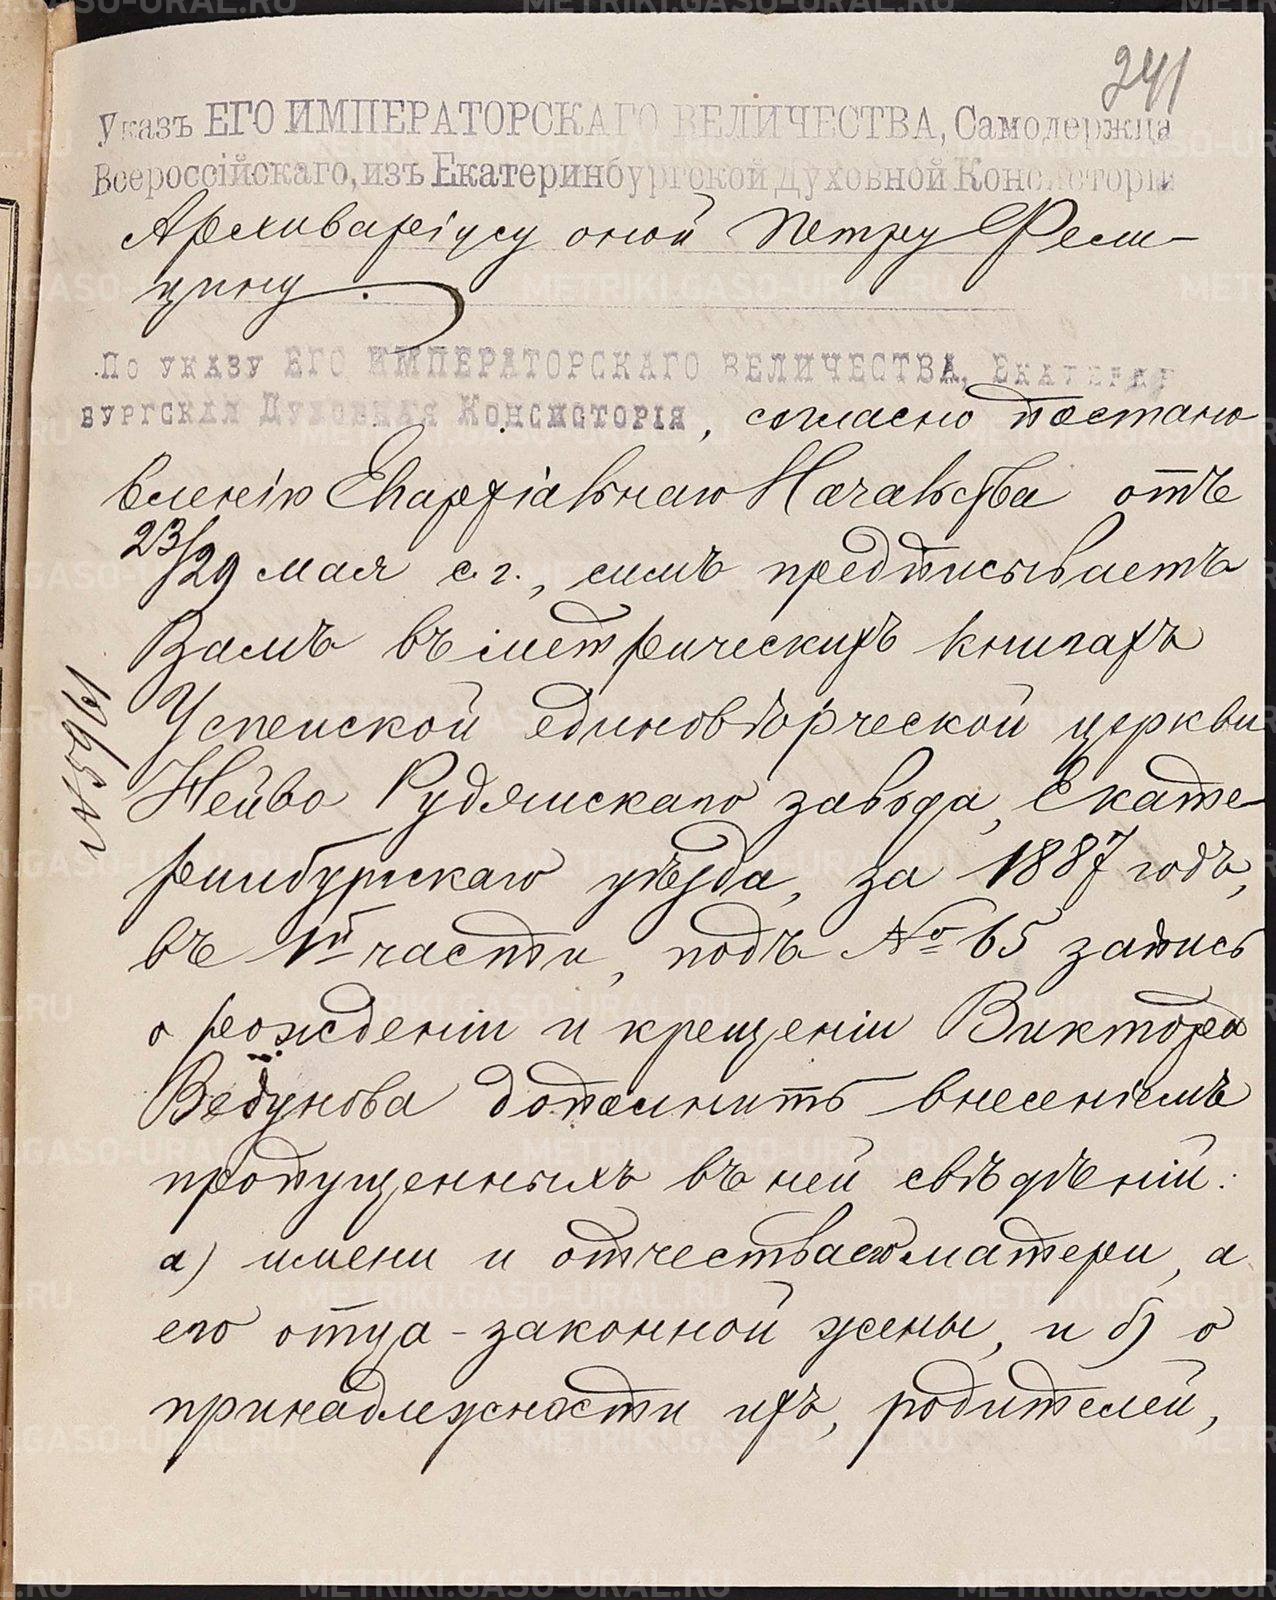 241
Указъ ЕГО ИМПЕРАТОРСКАГО ВЕЛИЧЕСТВА, Самодержца
Всероссійскаго, изъ Екатеринбургской Духовной Консисторіи
Архиваріусу оной Петру Фели-
цину.
По указу ЕГО ИМПЕРАТОРСКАГО ВЕЛИЧЕСТВА, Екатерин
бургская Духовная Консисторія, согласно постано
вленію Епархіальнаго Начальства отъ
23/29 мая с. г., симъ предписываетъ
Вамъ въ метрическихъ книгахъ
Успенской единовѣрческой церкви
Нейво Рудянскаго завода, Екате-
ринбургскаго уѣзда, за 1887 годъ,
въ 1й части, подъ № 65 запись
о рожденіи и крещеніи Виктора
Ведунова дополнить внесеніемъ
пропущенныхъ въ ней свѣдѣній:
а) имени и отчества его матери, а
его отца - законной жены, и б) о
принадлежности ихъ, родителей,
№ 5961
METRIKI.GASO-URAL.RU